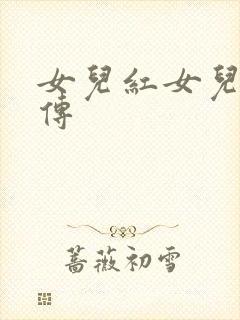 女兒紅女兒
傳
薔薇初雪